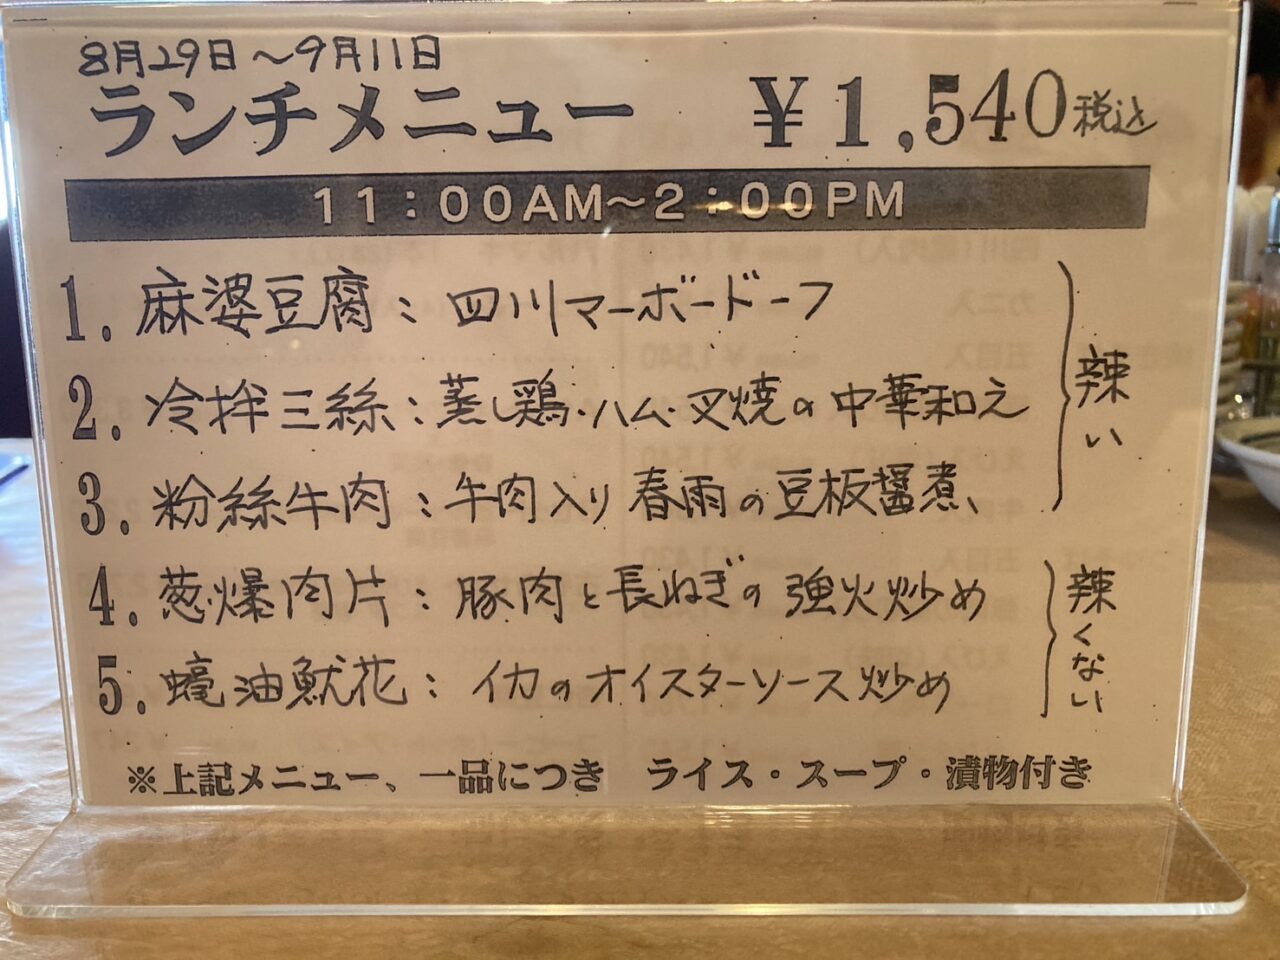 8月29日～9月11日
ランチメニュー ¥1,540税込
11：00AM～2：00PM
1. 麻婆豆腐：四川マーボードーフ
2. 冷拌三絲：蒸し鶏・ハム・叉焼の中華和え
3. 粉絲牛肉：牛肉入り春雨の豆板醤煮、
辛い
4. 葱爆肉片：豚肉と長ねぎの強火炒め
5. 蠔油魷花：イカのオイスターソース炒め
辛くない
※上記メニュー、一品につき ライス・スープ・漬物付き